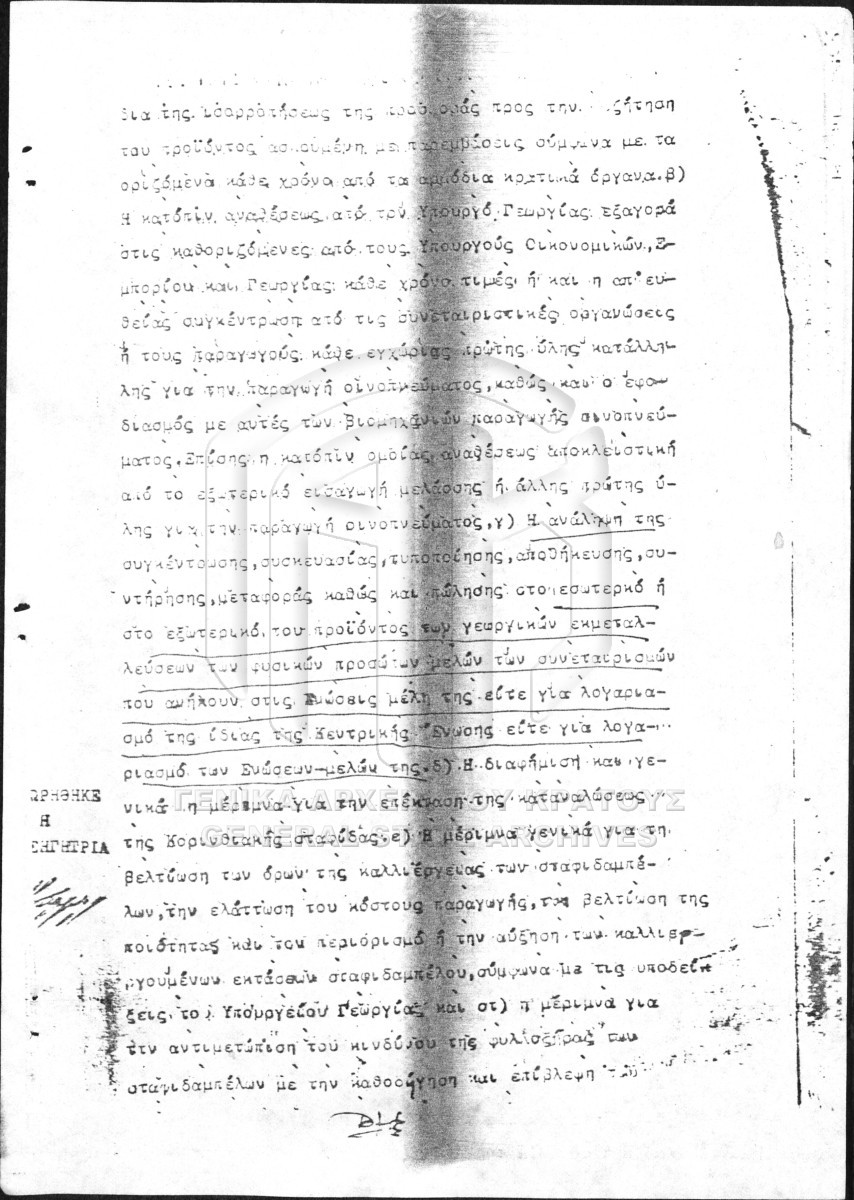 δια της ισορροπήσεως της προσφοράς προς την ζήτηση
του προϊόντος ασκουμένη με παρεμβάσεις σύμφωνα με τα
οριζόμενα κάθε χρόνο από τα αρμόδια κρατικά όργανα.β)
Η κατόπιν αναθέσεως από τον Υπουργό Γεωργίας εξαγορά
στις καθοριζόμενες από τους Υπουργούς Οικονομικών,Ε-
μπορίου και Γεωργίας κάθε χρόνο τιμές ή και η απ'ευ-
θείας συγκέντρωση από τις συνεταιριστικές οργανώσεις
ή τους παραγωγούς κάθε εγχώριας πρώτης ύλης κατάλλη-
λης για την παραγωγή οινοπνεύματος,καθώς και ο εφο-
διασμός με αυτές των βιομηχανιών παραγωγής οινοπνεύ-
ματος.Επίσης η κατόπιν ομοίας αναθέσεως αποκλειστική
από το εξωτερικό εισαγωγή μελάσσης ή άλλης πρώτης ύ-
λης για την παραγωγή οινοπνεύματος,γ) Η ανάληψη της
συγκέντρωσης,συσκευασίας,τυποποίησης,αποθήκευσης,συ-
ντήρησης,μεταφοράς καθώς και πώλησης στο εσωτερικό ή
στο εξωτερικό του προϊόντος των γεωργικών εκμεταλ-
λεύσεων των φυσικών προσώπων μελών των συνεταιρισμών
που ανήκουν στις Ενώσεις μέλη της είτε για λογαρια-
σμό της ίδιας της Κεντρικής Ένωσης είτε για λογα-
ριασμό των Ενώσεων-μελών της.δ) Η διαφήμιση και γε-
νικά η μέριμνα για την επέκταση της καταναλώσεως
της Κορινθιακής σταφίδας.ε) Η μέριμνα γενικά για τη
βελτίωση των όρων της καλλιέργειας των σταφιδαμπέ-
λων,την ελάττωση του κόστους παραγωγής, βελτίωση της
ποιότητας και τον περιορισμό ή την αύξηση των καλλιερ-
γουμένων εκτάσεων σταφιδαμπέλου,σύμφωνα με τις υποδεί
ξεις του Υπουργείου Γεωργίας και στ) η μέριμνα για
την αντιμετώπιση του κινδύνου της φυλλοξήρας των
σταφιδαμπέλων με την καθοδήγηση και επίβλεψη του
ΩΡΗΘΗΚΕ
Η
ΣΗΓΗΤΡΙΑ
ΓΕΝΙΚΑ ΑΡΧΕΙΑ ΤΟΥ ΚΡΑΤΟΥΣ
GENERAL STATE ARCHIVES